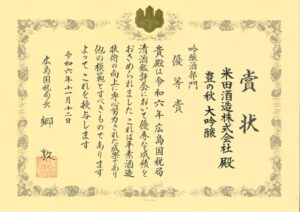 賞状
米田酒造株式会社 殿
豊の秋 大吟醸
吟醸酒部門
優等賞
貴殿は令和六年広島国税局
清酒鑑評会において優秀な成績を
おさめられましたこれは平素酒造
技術の向上に専心努力された成果であり
他の模範とすべきものであります
よってこれを授与します
令和六年十一月十二日
広島国税局長 郷 敦